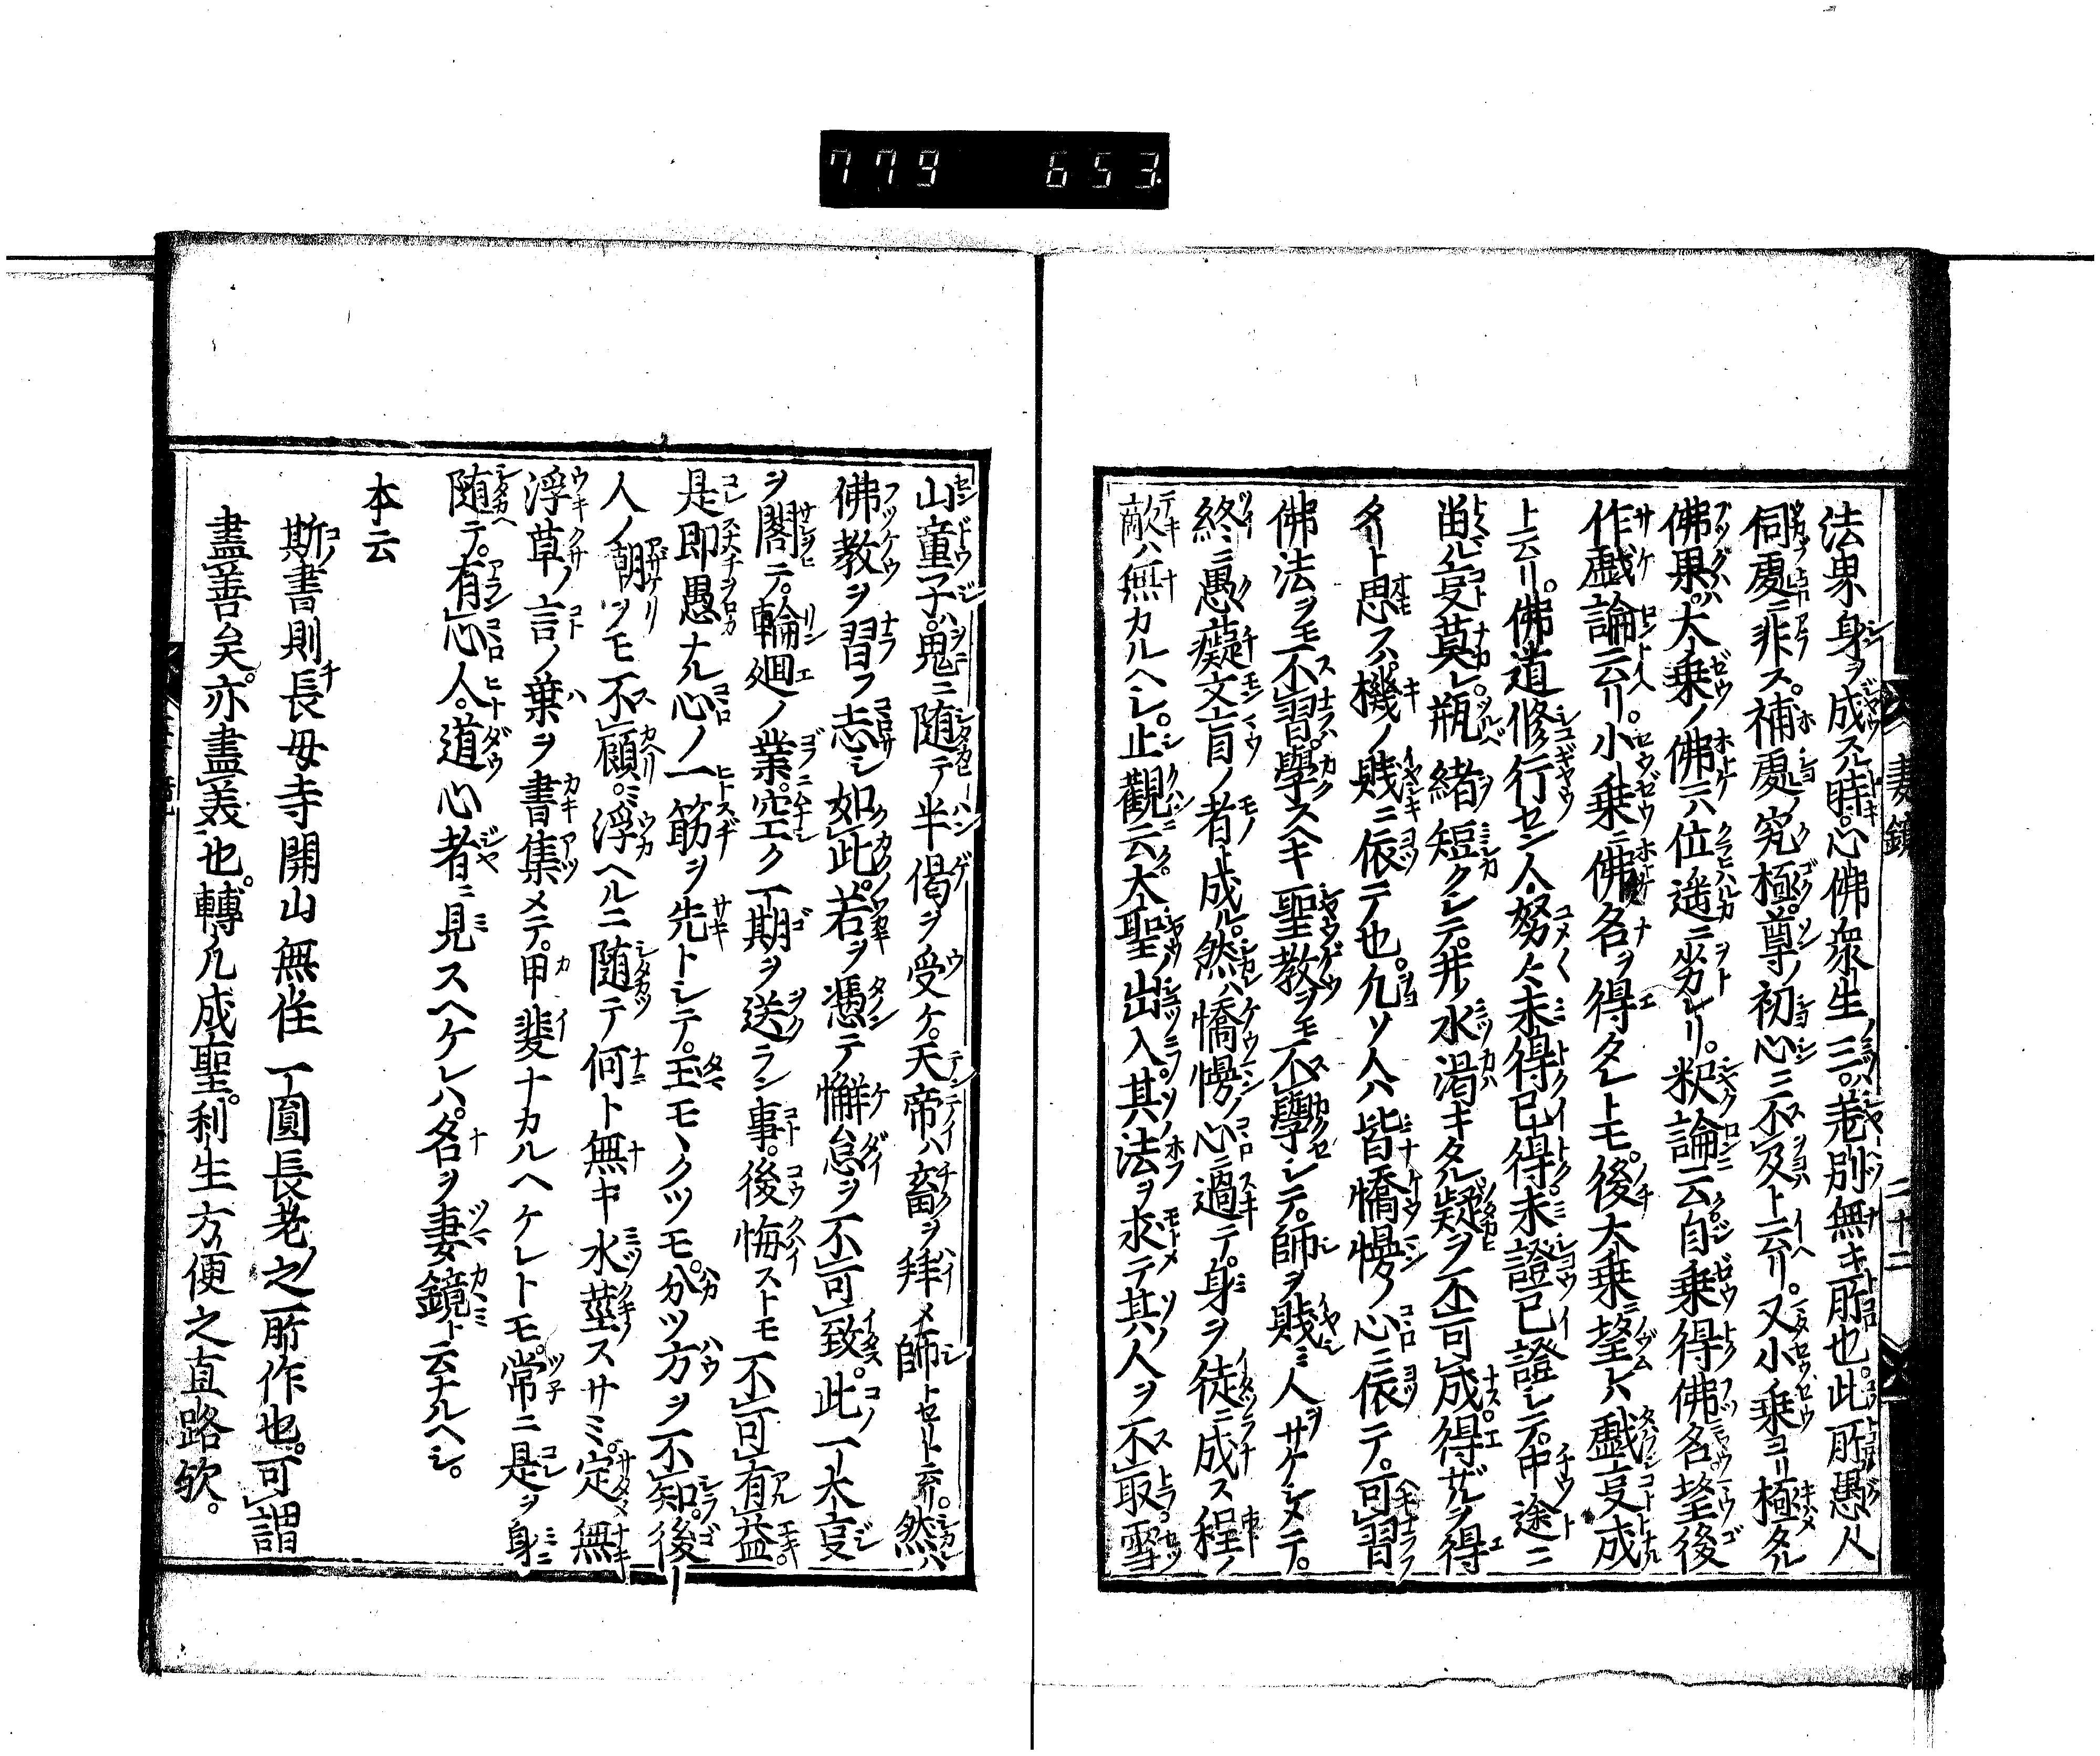 779 653
妻鏡 二十二
法界身ヲ成スル時。心佛衆生ノ三ハ。差別無キ所也。此所愚人
伺處ニ非ス。補處ノ究極尊ノ初心ニ不及ト云リ。又小乗ヨリ極タル
佛果。大乗ノ佛ハ位遥ニ劣レリ。釈論ニ云自乗得佛名望後
作戲論云リ。小乗ニ佛名ヲ得タレトモ。後大乗ニ望ハ戲叓成
ト云リ。佛道修行セン人。努々未得已得未證已證シテ。中途ニ
畄ル叓莫レ。瓶緒短クシテ。井ノ水渇キタル疑ヲ不可成。得ザルヲ得
タート思ス。機ノ賎ニ依テ也。凡ソ人ハ皆憍慢ノ心ニ依テ。可習
佛法ヲモ不習。學スヘキ聖教ヲモ不學シテ。師ヲ賎ミ人ヲサケシメテ。
終ニ愚癡文盲ノ者ト成ル。然ハ憍慢ノ心ニ過テ。身ヲ徒ニ成ス程ノ
敵ハ無カルヘシ。止觀云大聖出入其法ヲ求テ其人ヲ不取雪
山童子ハ。鬼ニ随テ半偈ヲ受ケ。天帝ハ畜ヲ拜メ師トセート云。然ハ
佛教ヲ習フ志シ如此。若ヲ憑テ懈怠ヲ不可致。此一大叓
ヲ閣テ。輪廻ノ業。空ク一期ヲ送ラン事。後悔ストモ不可有益。
是即愚ナル心ノ一筋ヲ先トシテ。玉モヽクツモ。分ツ方ヲ不知。後ー
人ノ嘲ヲモ不顧。浮ヘルニ随テ何ト無キ水莖スサミ。定無
浮草ノ言ノ葉ヲ書集メテ。甲斐ナカルヘケレトモ。常ニ是ヲ身
随テ。有心人。道心者ニ見スヘケレハ。名ヲ妻鏡ト云ナルヘシ。
本云
斯書則長母寺開山無住一圓長老之所作也。可謂
盡善矣。亦盡美也。轉凡成聖。利生方便之直路欤。